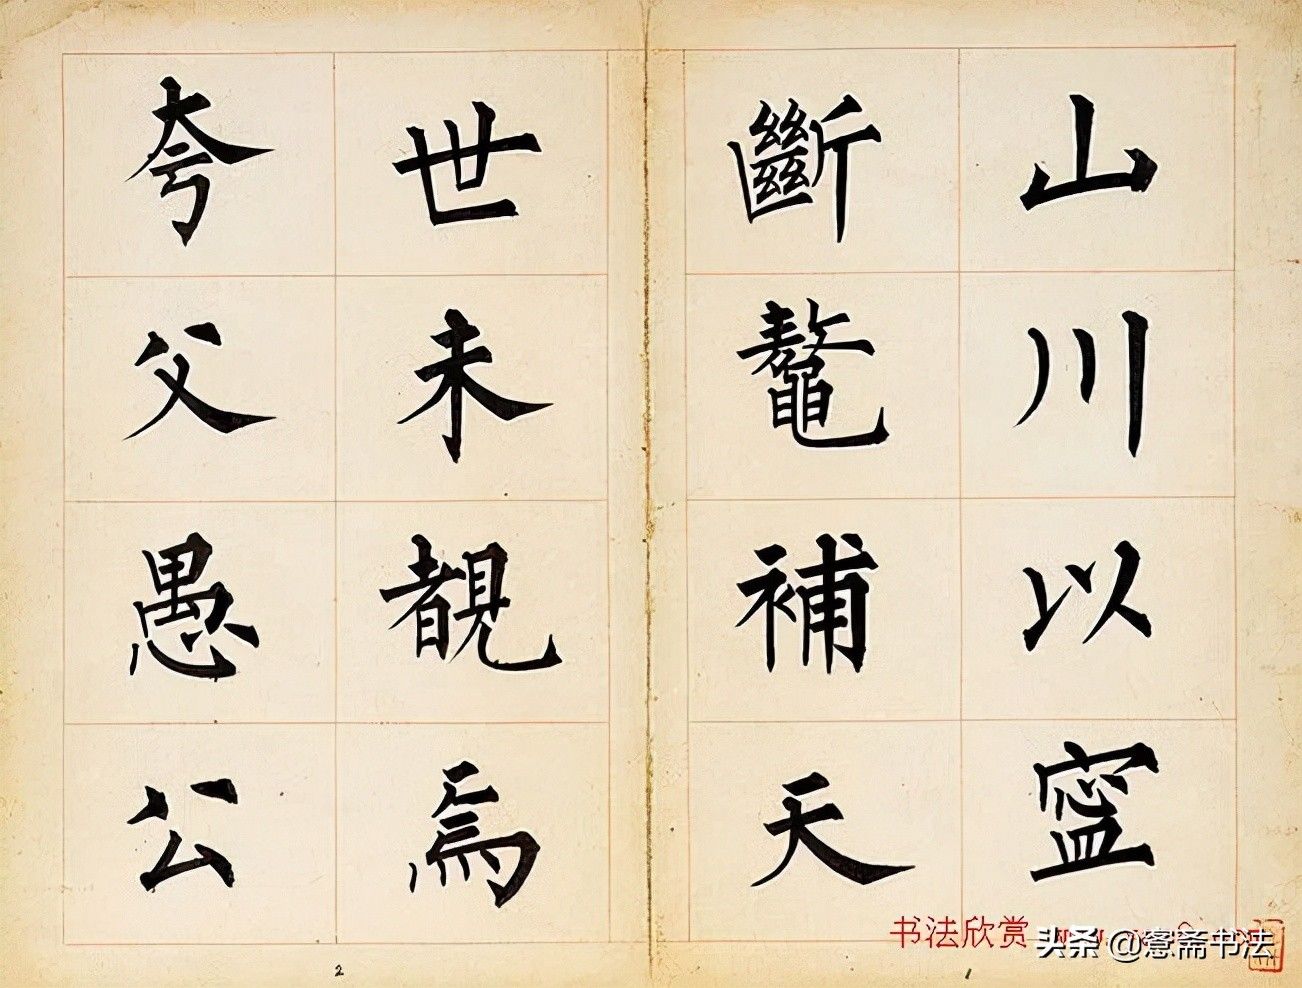 山川以寍
斷鼇補天
世未覩焉
夸父愚公
1
2
书法欣赏
头条 @窓斋书法